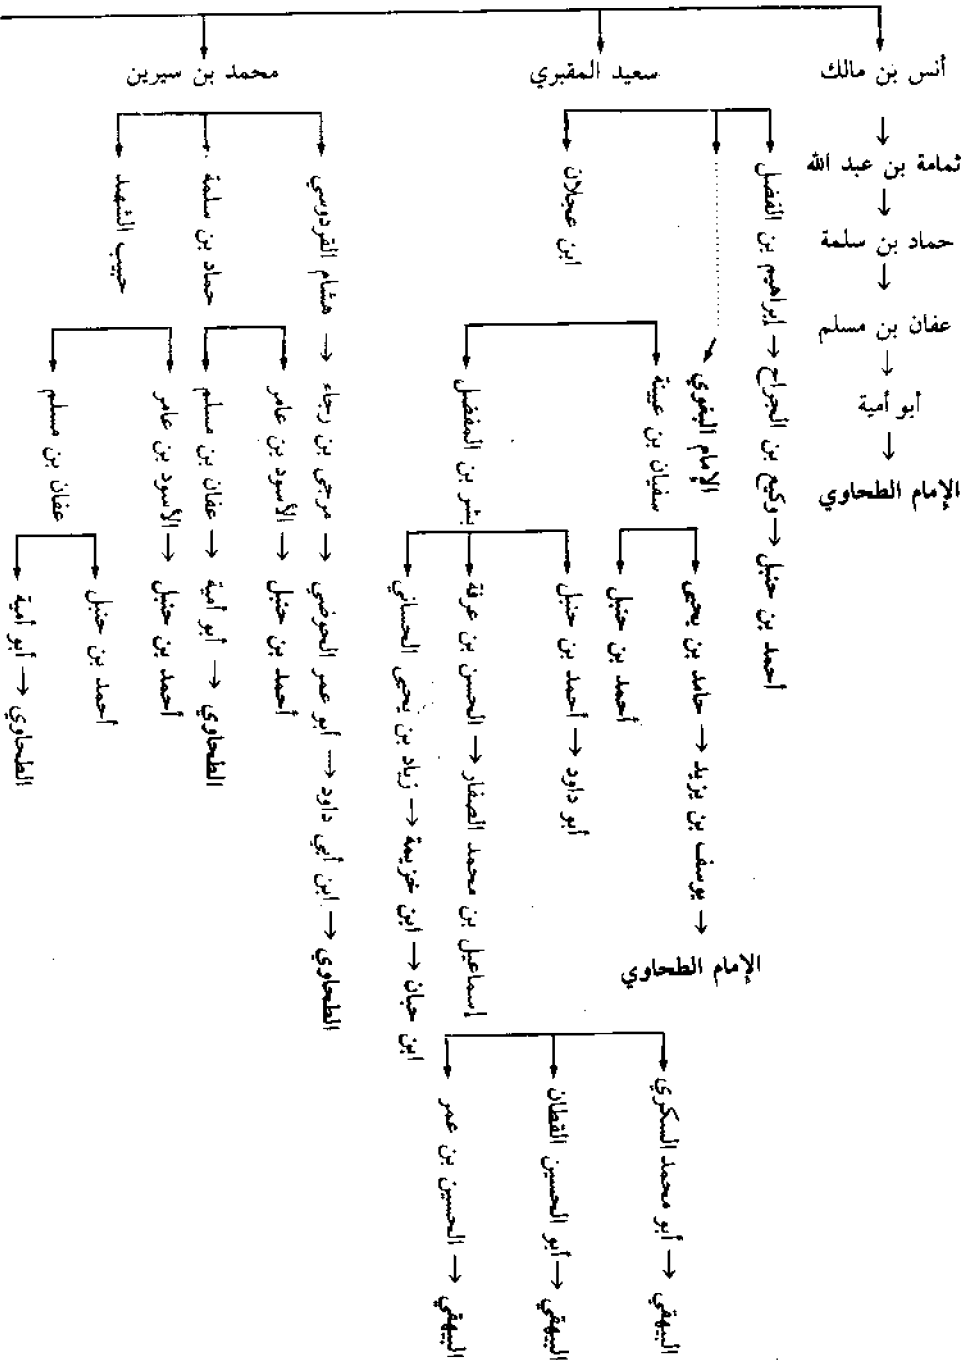 أنس بن مالك
سعيد المقبري
محمد بن سيرين
ثمامة بن عبد الله
حماد بن سلمة
عفان بن مسلم
أبو أمية
الإمام الطحاوي
إبراهيم بن الفضل → وكيع بن الجراح → أحمد بن حنبل
الإمام البغوي
ابن عجلان
سفيان بن عيينة
حامد بن يحيى → يوسف بن يزيد →
الإمام الطحاوي
أحمد بن حنبل
بشر بن المفضل
أحمد بن حنبل → أبو داود
الحسن بن عرفة → إسماعيل بن محمد الصفار
أبو محمد السكري → البيهقي
أبو الحسين القطان → البيهقي
الحسين بن عمر → البيهقي
زياد بن يحيى الحساني → ابن خزيمة → ابن حبان
هشام القردوسي → مرجى بن رجاء → أبو عمر الحوضي → ابن أبي داود → الطحاوي
حماد بن سلمة
الأسود بن عامر → أحمد بن حنبل
عفان بن مسلم → أبو أمية → الطحاوي
حبيب الشهيد
الأسود بن عامر → أحمد بن حنبل
عفان بن مسلم
أحمد بن حنبل
أبو أمية → الطحاوي